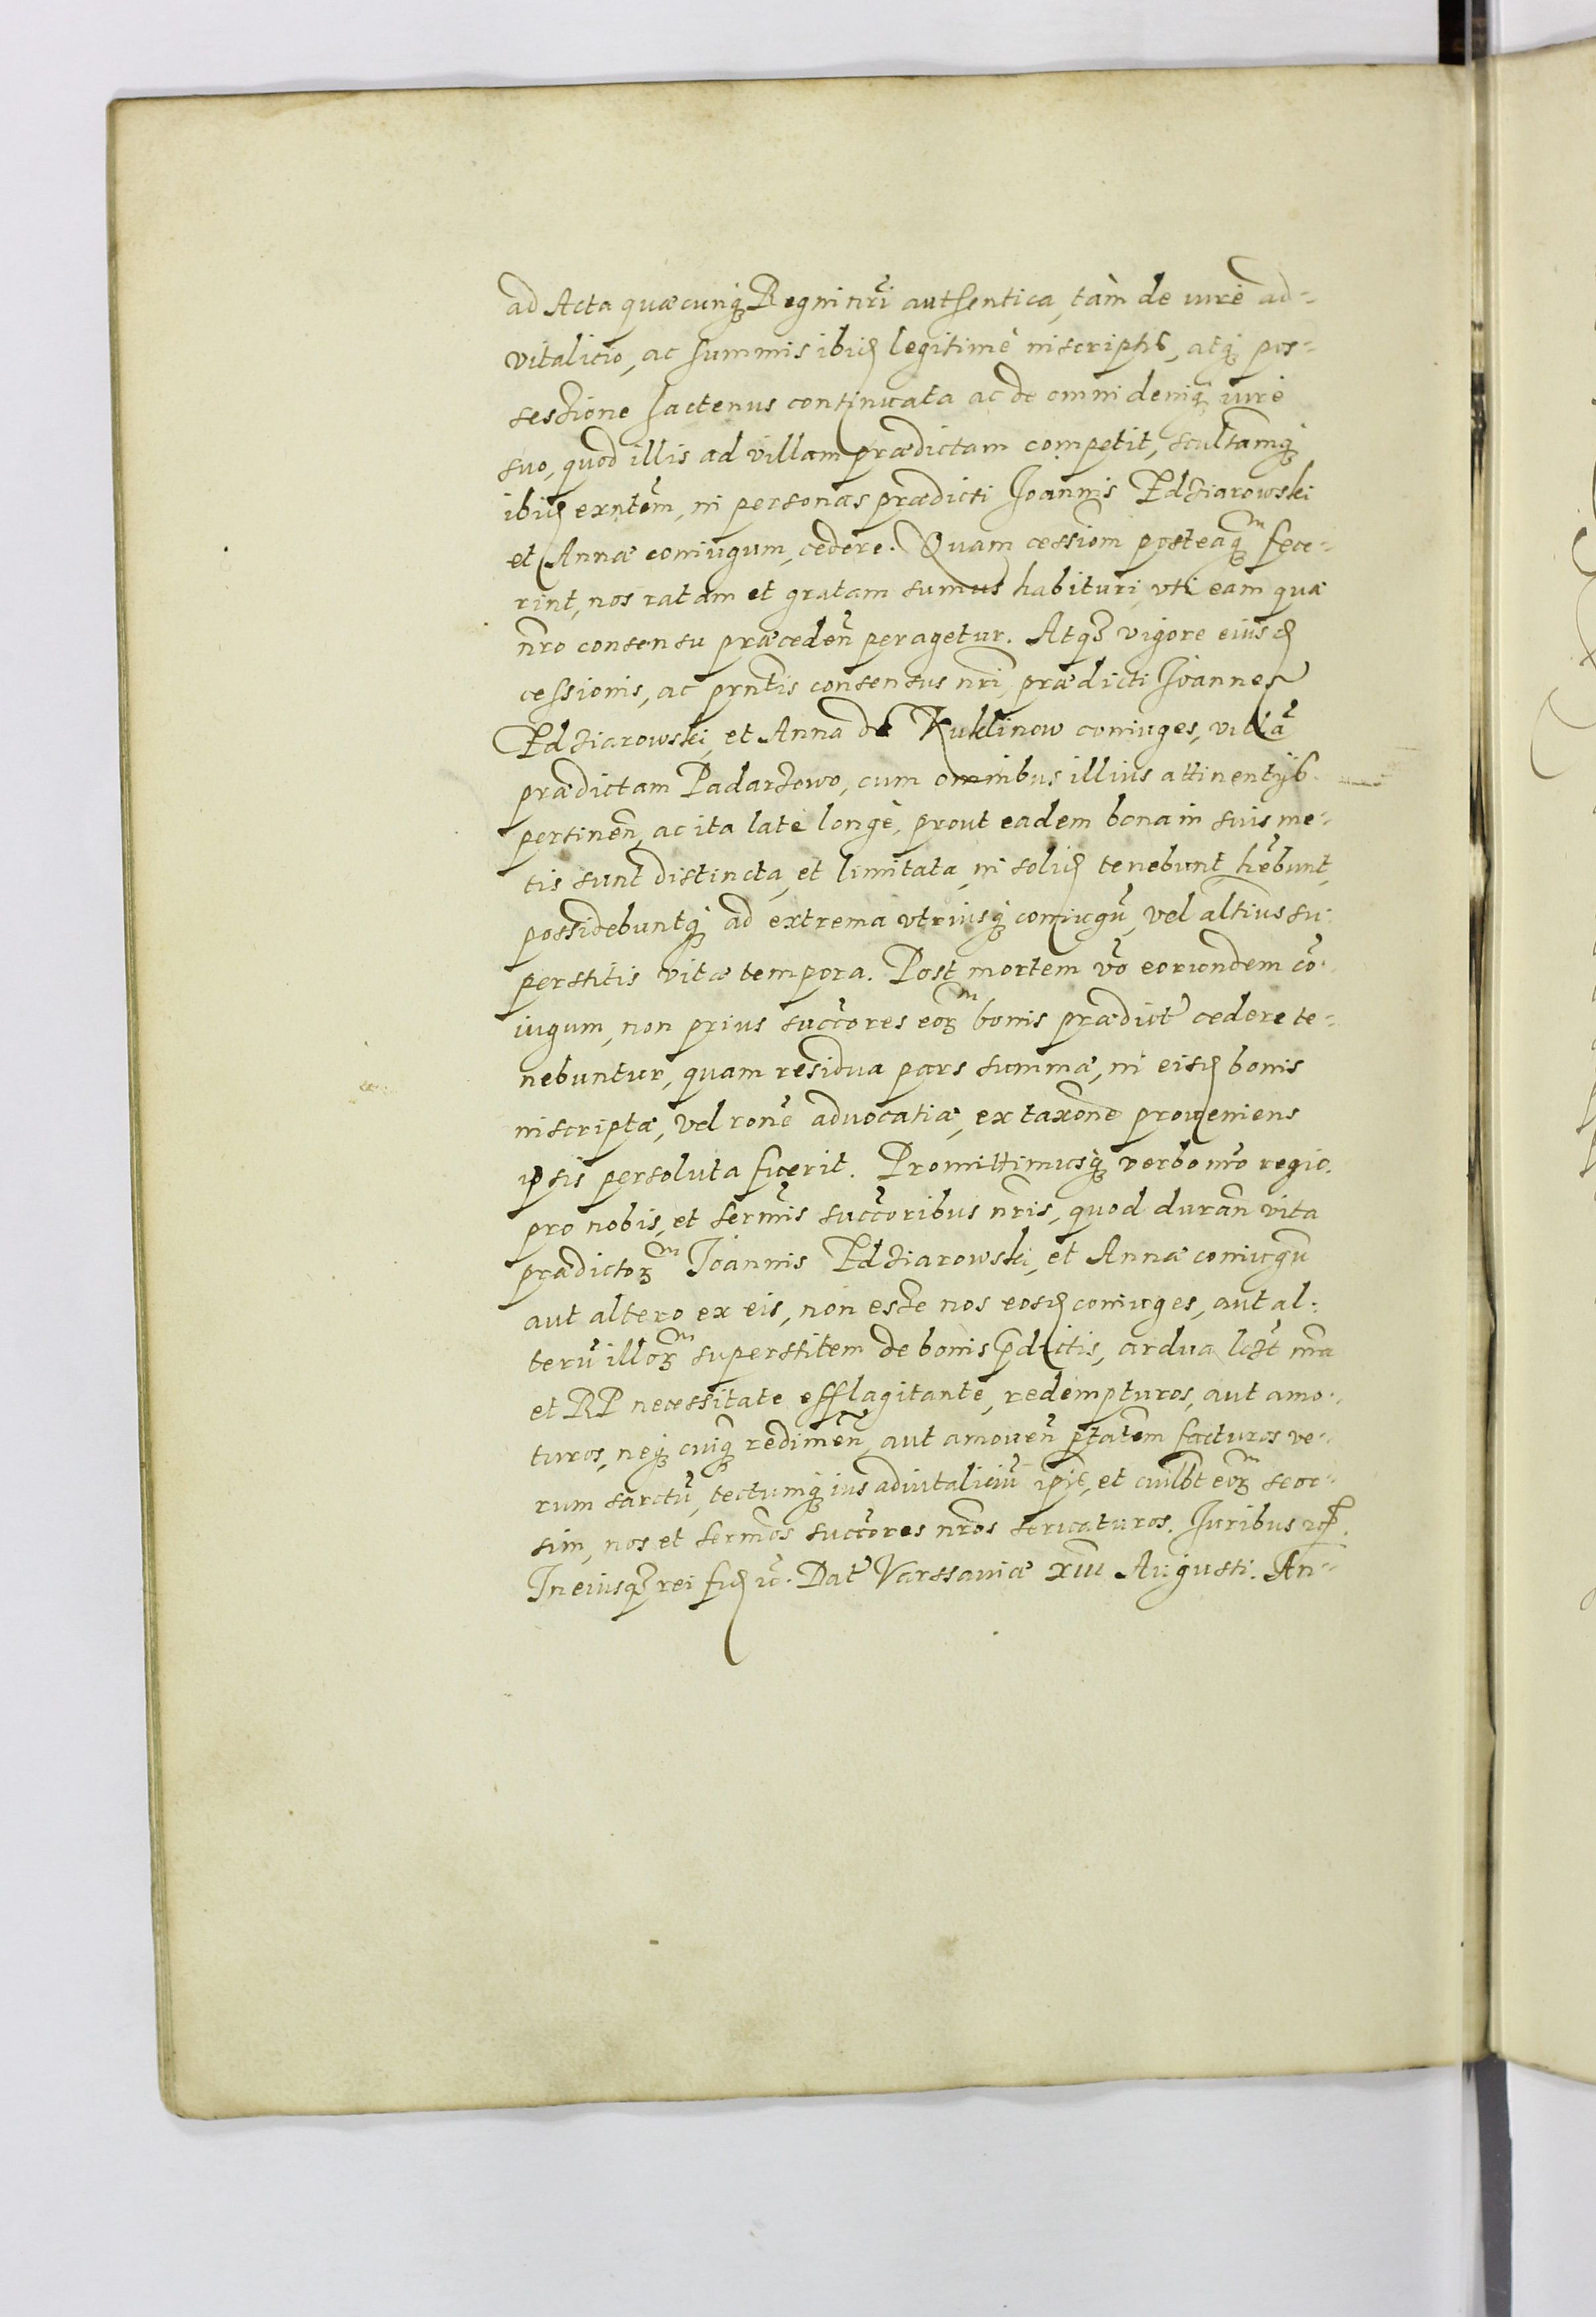 ad Acta quæcunq₃ Regni nr̃i authentica, tàm de iure ad-
vitalicio, ac summis ibid legitimè inscriptis, atq₃ pos-
sessione hactenus continuata ac de omni deniq₃ iure
suo, quod illis ad villam prædictam competit,
ibid exn̄tem, in personas prædicti Joannis Zdziarowski
et Annæ coniugum, cedere. Quam cessionem posteaq₃ᵐ fece-
rint, nos ratam et gratam sumus habituri, vti eam quæ
nr̃o consensu præceden̄ peragetur. Atq₃ vigore eiusd
cessionis, ac prn̄tis consensus nr̃i, prædicti Joannes
Zdziarowski, et Anna de Kuklinow coniuges, villã
prædictam Padarzewo, cum omnibus illius attinentijs
pertinen̄, ac ita latè longè, prout eadem bona in suis me-
tis sunt distincta, et limitata, in solid tenebunt, hēbunt,
possidebuntq₃ ad extrema vtriusq₃ coniugũ, vel altius su-
perstitis vitæ tempora. Post mortem vō eorundem cō-
iugum, non prius succōres eoꝝᵐ bonis prædict cedere te-
nebuntur, quam residua pars summæ, in eisd bonis
inscriptæ, vel rōne advocatiæ, ex taxōne proveniens
ipsis persoluta fuerit. Promittimusq₃ verbo nr̃o regio
pro nobis, et serm̄is succōribus nr̃is, quod duran̄ vita
prædictoꝝᵐ Joannis Zdziarowski, et Annæ coniugũ
aut altero ex eis, non esse nos eosd coniuges, aut al-
terũ illoꝝᵐ superstitem de bonis p̄dictis, ardua licet nr̃a
et RP necessitate efflagitante, redempturos, aut amo-
turos, neq₃ cuiq₃ redimen̄, aut amoven̄ ptãtem facturos ve-
rum sarctũ, tectumq₃ ius advitaliciũ ips̄, et cuilbt eoꝝᵐ seor-
sim, nos et serm̄os succōres nr̃os servaturos. Juribus
In eiusq₃ rei fid Dat Varssaviæ xiii Augusti. An-